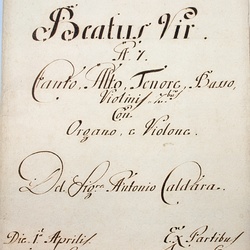 Beatus Vir.
A. 7.
Canto, Alto, Tenore, Basso,
Violinis 2bus
Con
Organo, e Violone.
Del Sigre Antonio Caldara.
Die 1. Aprilis
Ex Partibus